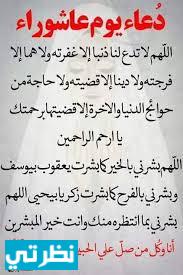 دُعاء يوم عاشوراء
اللّهم لا تدع لنا ذنبا إلا غفرته ولا هما إلا
فرجته ولا دينا إلا قضيته ولا حاجة من
حوائج الدنيا والاخرة إلا قضيتها برحمتك
يا ارحم الراحمين
اللّهم بشرني بالخير كما بشرت يعقوب بيوسف
وبشرني بالفرح كما بشرت زكريا بيحيى اللهم
بشرني بما انتظره منك وانت خير المبشرين
أنا وكل من صلّ علي الحبيب
نظرتي